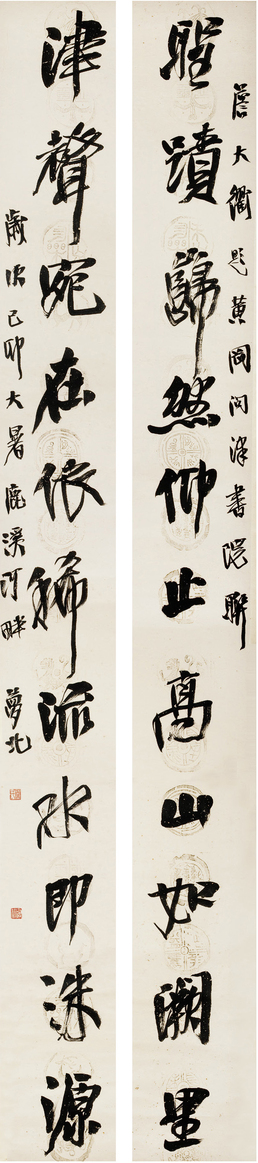 詹大衢題黄岡问津書院聯
聖蹟巋然仰止高山如闕里
津聲宛在依稀流水即洙源
歲次己卯大暑鹿溪河畔 夢北